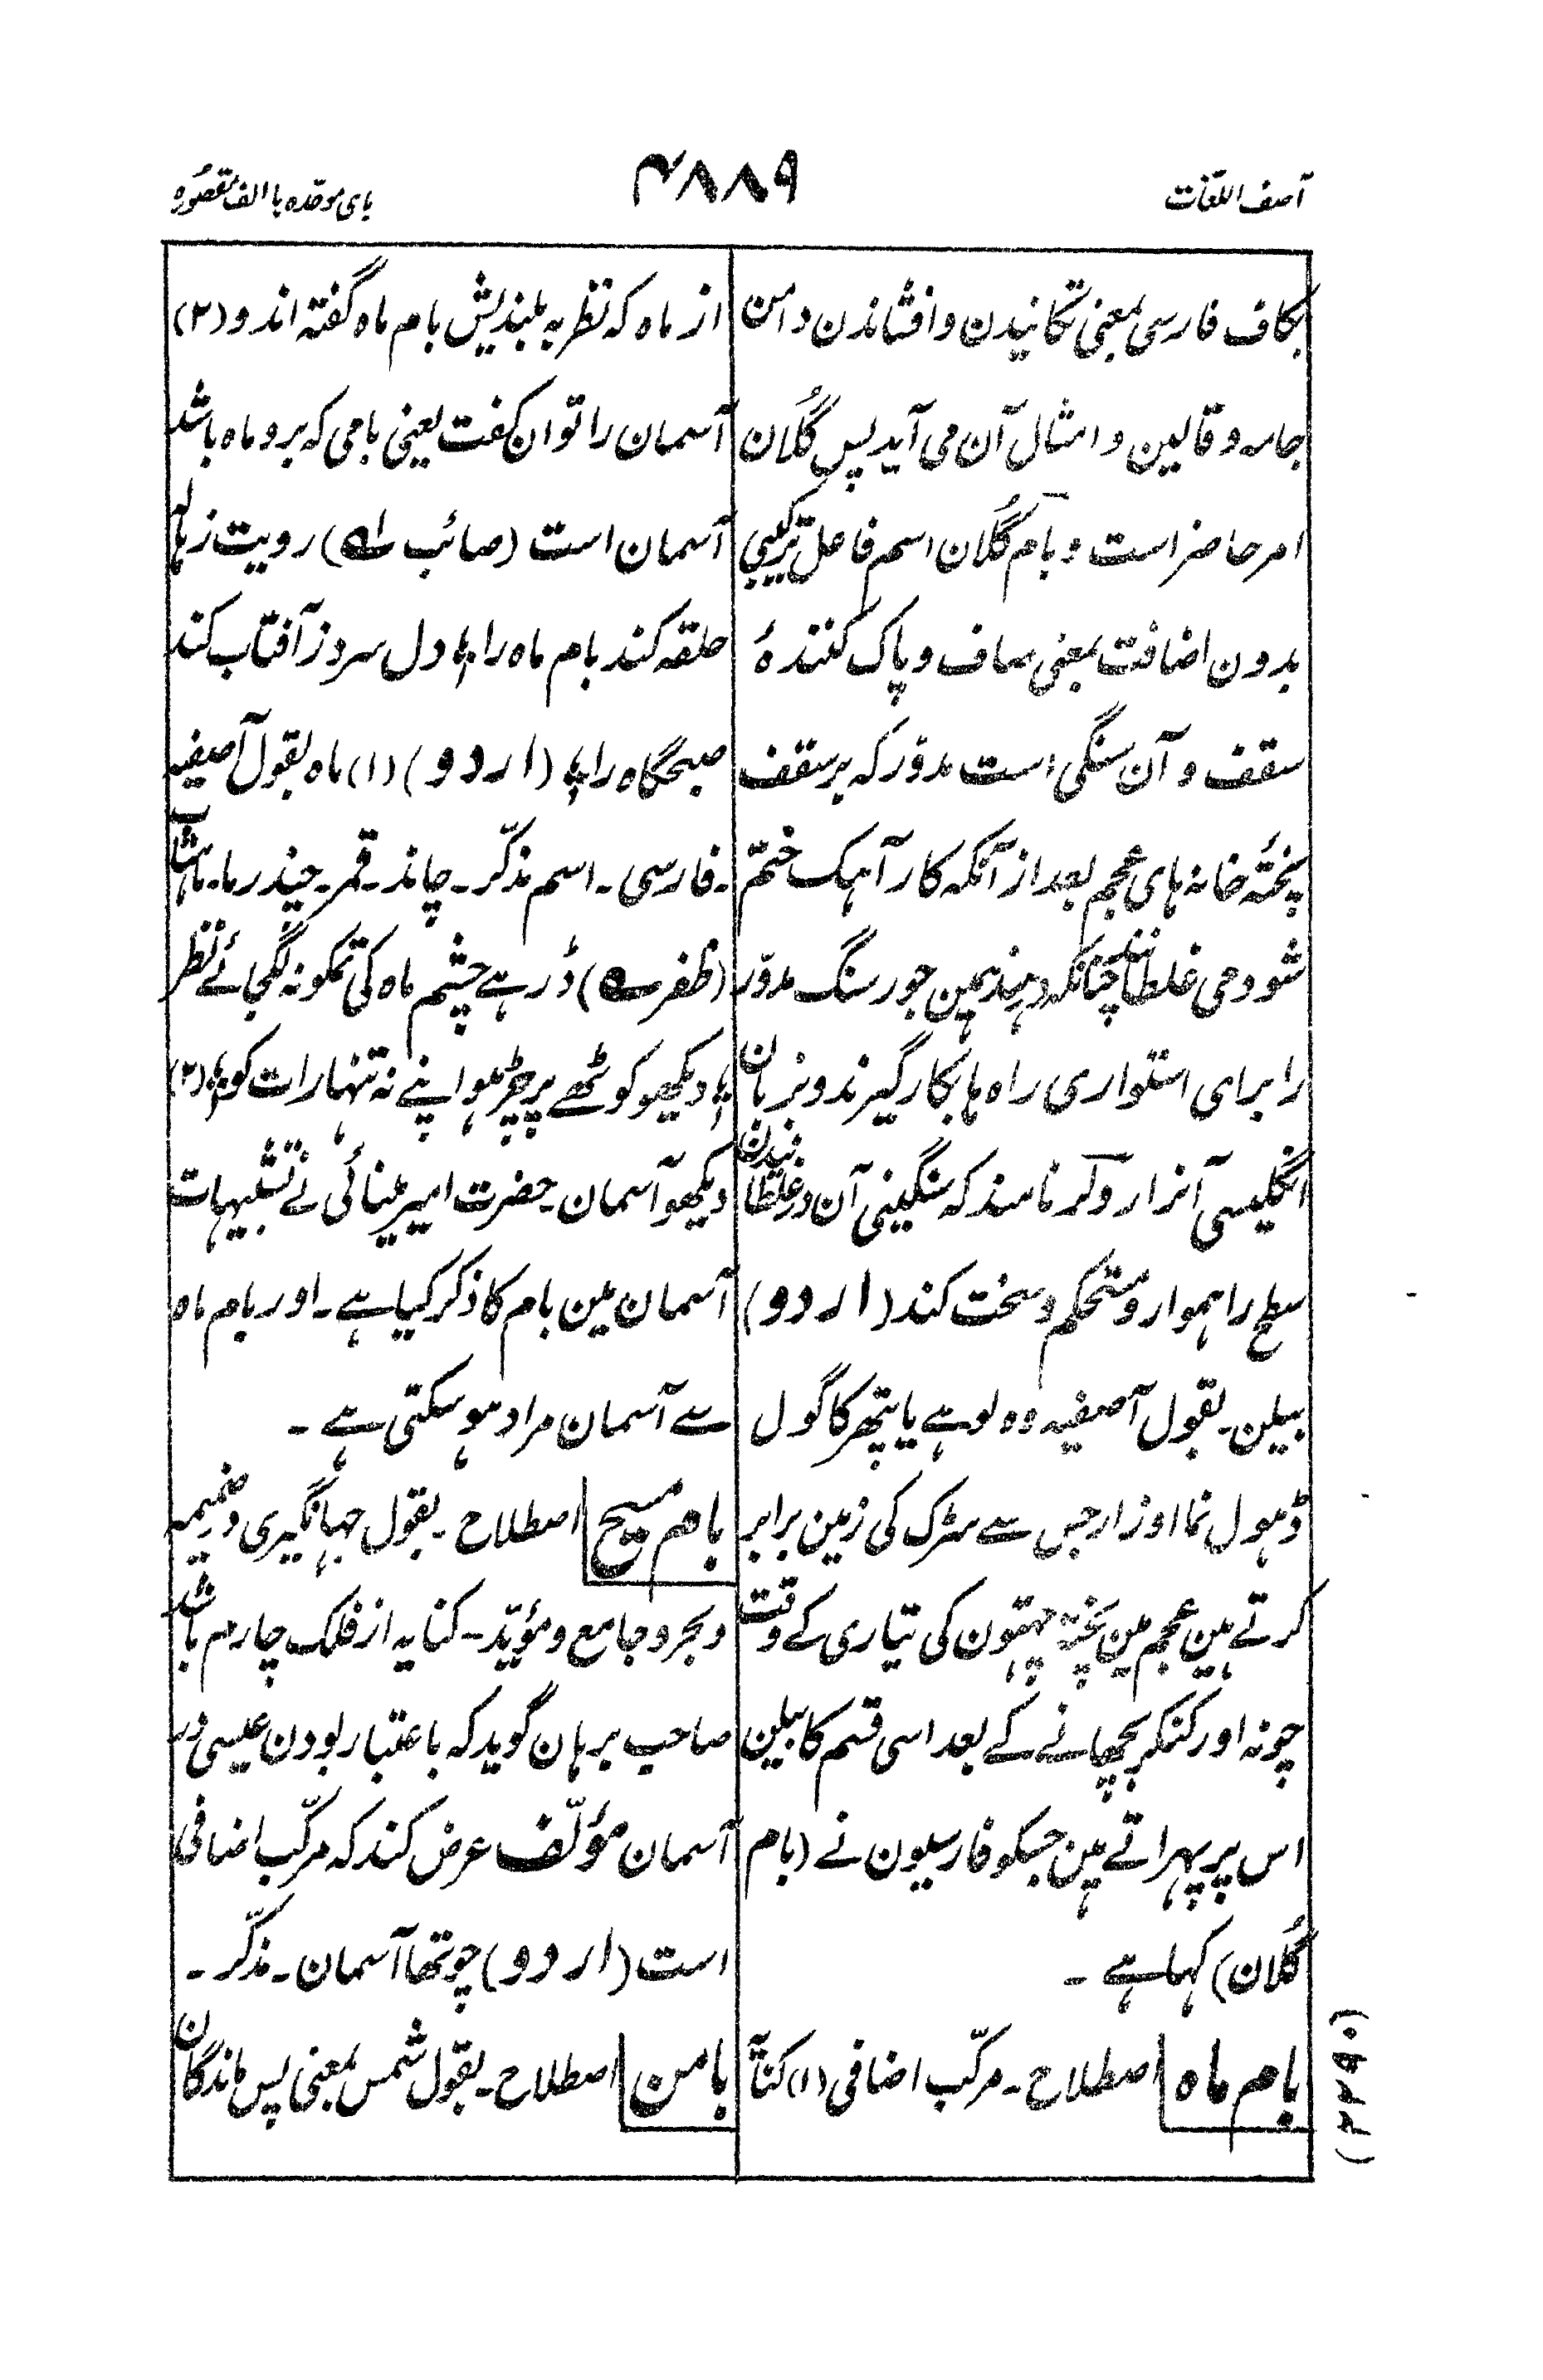 آصف اللغات
۴۸۸۹
بای موحّده با الف مقصوره
بکاف فارسی بمعنی تکانیدن و افشاندن دامن
جامه و قالین و امثال آن می آید پس گُلان
امر حاضر است و بام گُلان اسم فاعل ترکیبی
بدون اضافت بمعنی صاف و پاک کنندهٔ
سقف و آن سنگی است مدوّر که بر سقف
پختهٔ خانه های عجم بعد از آنکه کار آهک ختم
شود می غلطانند چنانکه در هند همین جور سنگ مدوّر
را برای استواری راه ها بکار گیرند و بزبان
انگلیسی آنرا رولر نامند که سنگینی آن در غلطانیدن
سطح را هموار و مستحکم و سخت کند (اردو)
بیلن۔ بقول آصفیہ وہ لوہے یا پتھر کا گول
ڈہول نما اوزار جس سے سڑک کی زمین برابر
کرتے ہین عجم مین پختہ چہتون کی تیاری کے وقت
چونہ اور کنکر بچھانے کے بعد اسی قسم کا بیلن
اس پر پہراتے ہین جسکو فارسیون نے (بام
گُلان) کہا ہے ۔
بام ماه اصطلاح۔ مرکّب اضافی (۱) کنایۃً
(۲۲۹۰)
از ماه که نظر به بلندیش بام ماه گفته اند و (۲)
آسمان را توان گفت یعنی بامی که برو ماه باشد
آسمان است (صائب ؎) رویت ز هاله
حلقه کند بام ماه را ؛ دل سرد ز آفتاب کند
صبحگاه را ؛ (اردو) (۱) ماہ بقول آصفیہ
۔فارسی۔ اسم مذکّر۔ چاند۔ قمر۔ چندرما۔ ماہتاب
(ظفر ؎) ڈر ہے چشم ماہ کی تمکو نہ لگجائے نظر
؛ دیکھو کوٹھے پر چڑہو اپنے نہ تنہا رات کو ؛ (۲)
دیکھو آسمان۔ حضرت امیر مینائی نے تشبیہات
آسمان مین بام کا ذکر کیا ہے۔ اور بام ماہ
سے آسمان مراد ہو سکتی ہے ۔
بام مسیح اصطلاح۔ بقول جہانگیری و ضمیمہ
و بحر و جامع و مؤیّد۔ کنایه از فلک چارم باشد
صاحب برهان گوید که باعتبار بودن عیسی در
آسمان مؤلّف عرض کند که مرکّب اضافی
است (اردو) چوتھا آسمان۔ مذکّر۔
بامن اصطلاح۔ بقول شمس بمعنی پس ماندگان